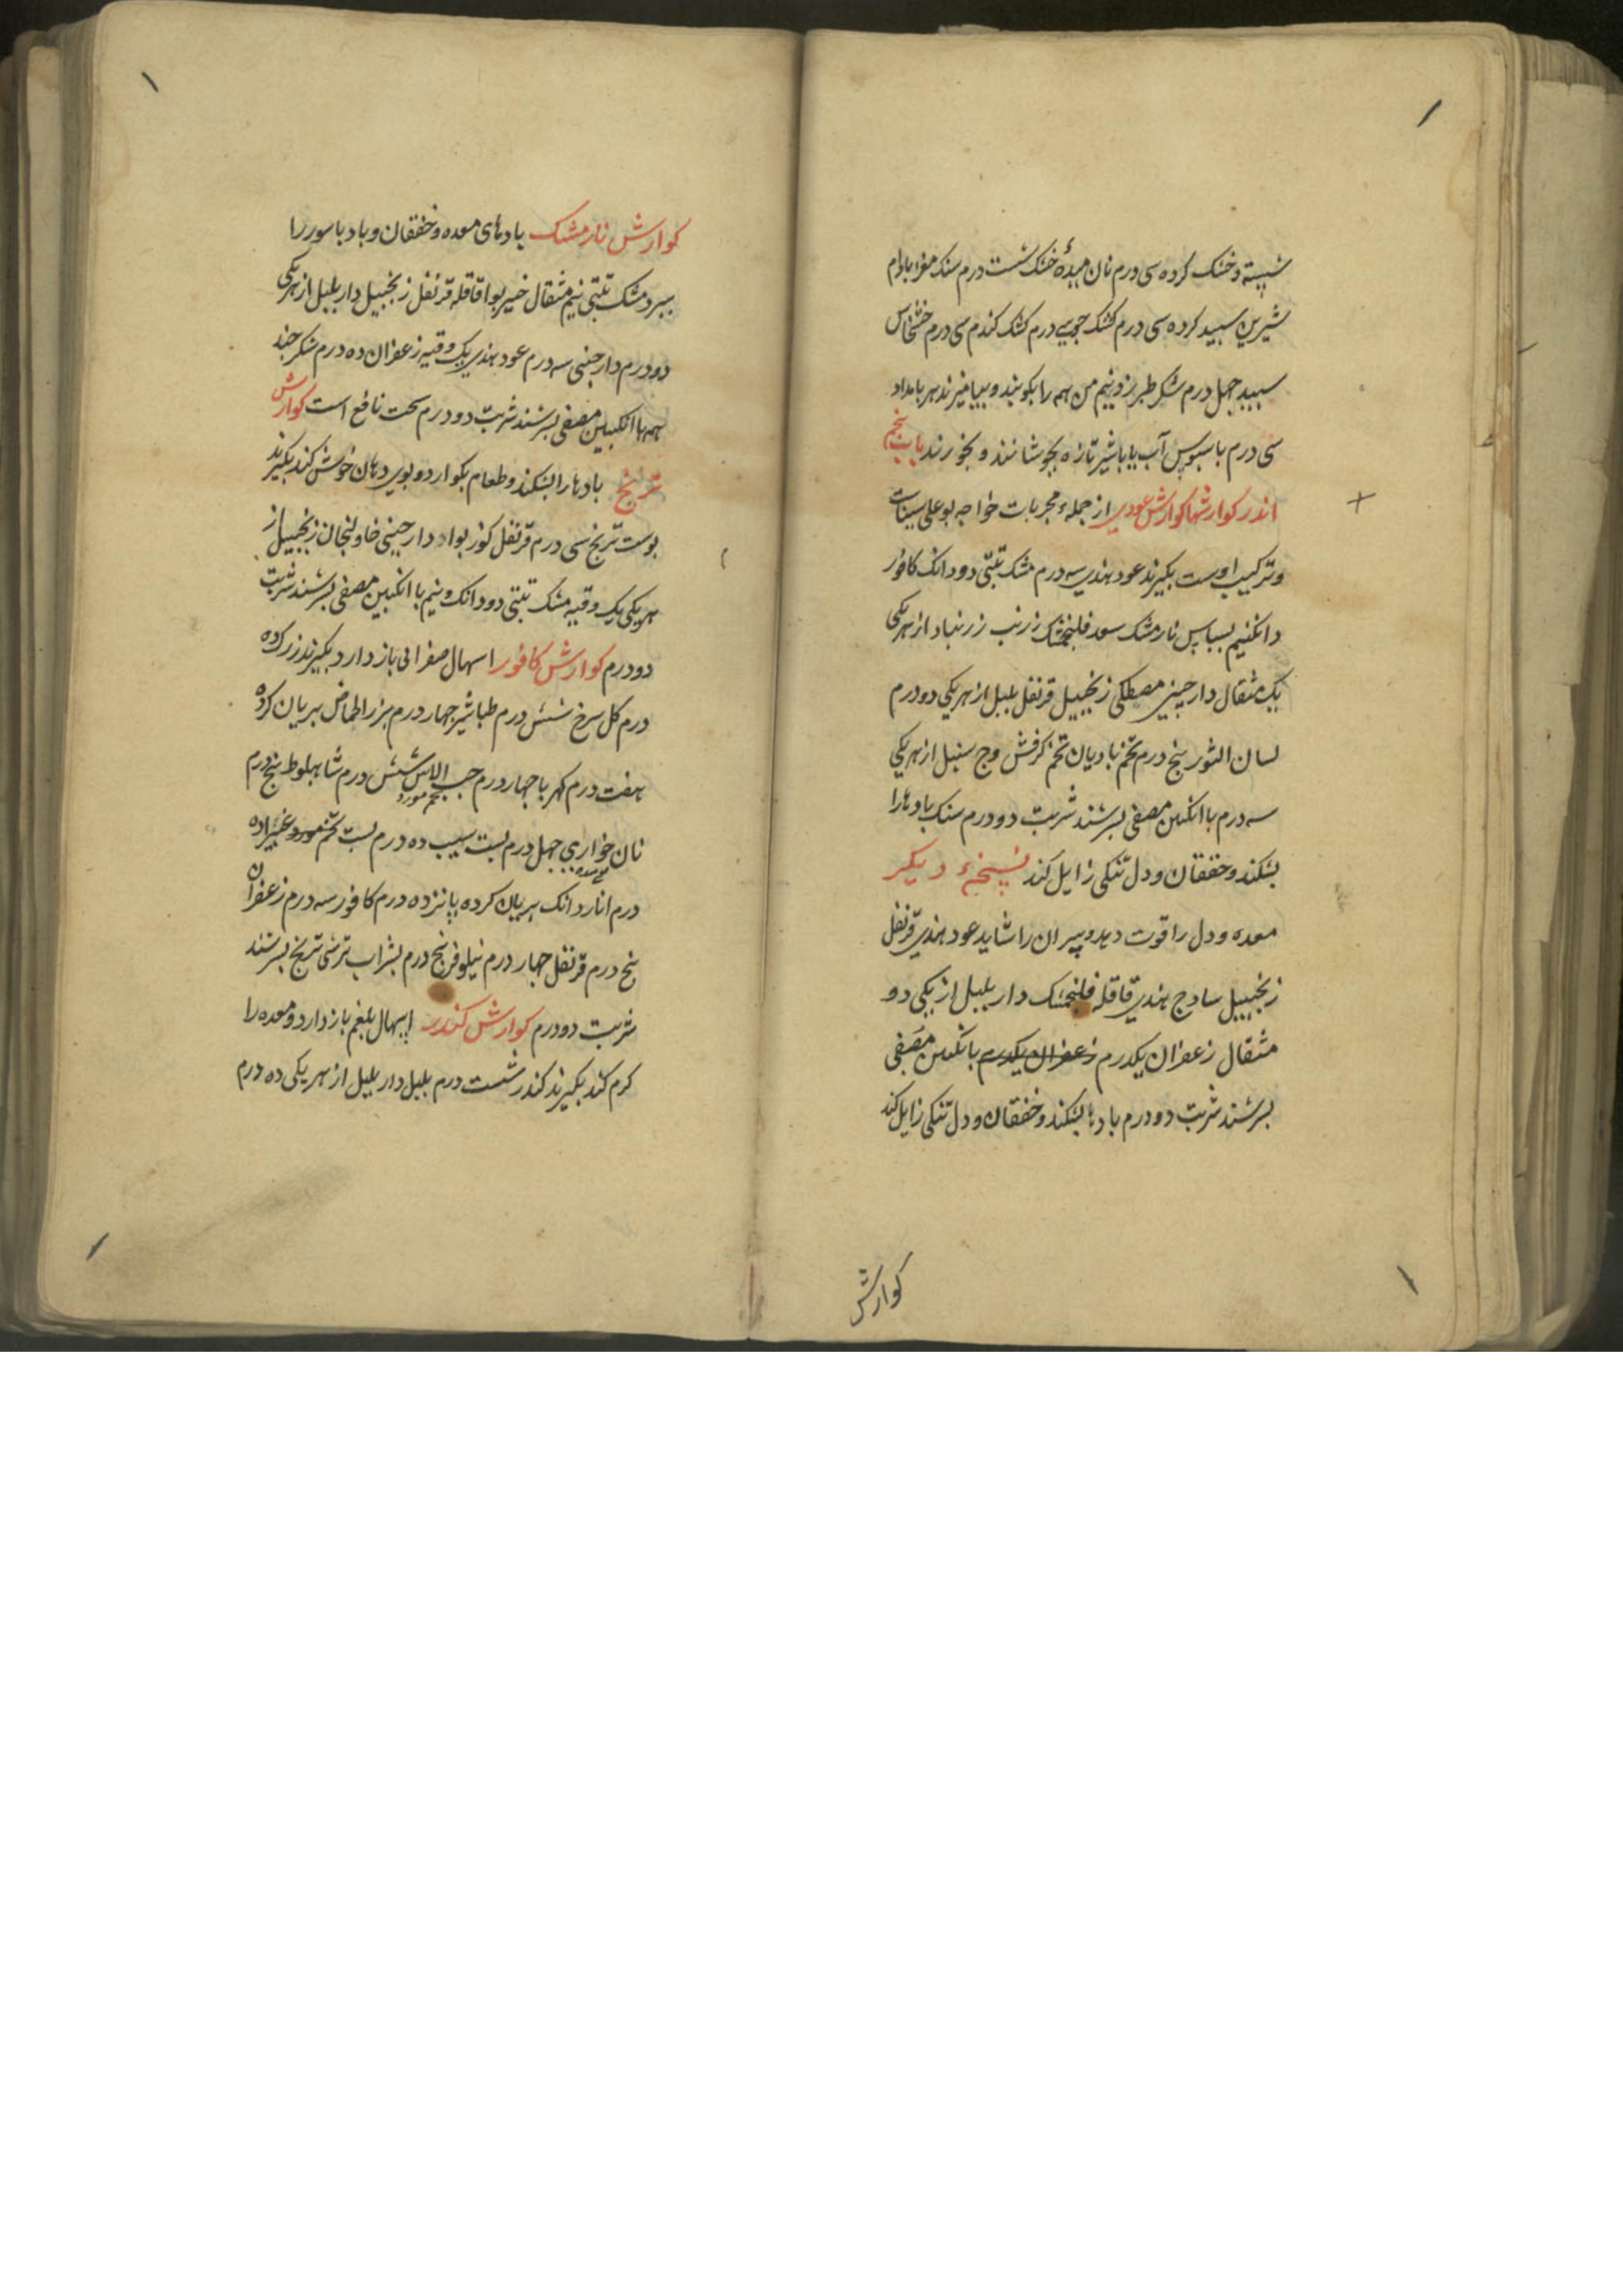 شسته و خشک کرده سی درم نان میدهٔ خشک شست درم سنک مغز بادام
شیرین سبید کرده سی درم کشک جو سی درم کشک کندم سی درم خشخاش
سبید جهل درم شکر طبرزد نیم من همه را بکوبند و بیامیزند هر بامداد
سی درم با سبوس آب یا با شیر تازه بجوشانند و بخورند باب پنجم
اندر کوارشها کوارش عودی از جملهٔ مجربات خواجه بوعلی سیناست
و ترکیب اوست بکیرند عود هندی سه درم مشک تبتی دو دانک کافور
دانکنیم بسباس نارمشک سعد فلنجمشک زرنب زرنباد از هر یکی
یک مثقال دارچینی مصطکی زنجبیل قرنفل بلبل از هر یکی دو درم
لسان الثور پنج درم تخم بادیان تخم کرفش وج سنبل از هر یکی
سه درم با انکبین مصفی بسرشند شربت دو درم سنک بادها را
بشکند و خفقان و دل تنکی زایل کند نسخهٔ دیکر
معده و دل را قوت دهد و پیران را شاید عود هندی قرنفل
زنجبیل سادج هندی قاقله فلنجمشک دار بلبل از یکی دو
مثقال زعفران یکدرم زعفران یکدرم بانکبین مصفی
بسرشند شربت دو درم بادها بشکند و خفقان و دل تنکی زایل کند
کوارش
کوارش نارمشک بادهای معده و خفقان و باد باسور را
ببرد مشک تبتی نیم مثقال خیربوا قاقله قرنفل زنجبیل دار بلبل از هر یکی
دو درم دارچینی سه درم عود هندی یک وقیه زعفران ده درم شکر چند
همه با انکبین مصفی بسرشند شربت دو درم سخت نافع است کوارش
ترنج بادها را بشکند و طعام بکوارد و بوی دهان خوش کند بکیرند
بوست ترنج سی درم قرنفل کوزبوا دارچینی خاولنجان زنجبیل از
هر یکی یک وقیه مشک تبتی دو دانک و نیم با انکبین مصفی بسرشند شربت
دو درم کوارش کافور اسهال صفرائی باز دارد بکیرند زرک ده
درم کل سرخ شش درم طباشیر جهار درم بزر الحماض بریان کرده
هفت درم کهربا جهار درم حب الاس شش درم شاهبلوط پنج درم
تخم مورد
نان خواری جهل درم بست سیب ده درم بست تخم مورد و غبیرا ده
درم انار دانک بریان کرده پانزده درم کافور سه درم زعفران
پنج درم قرنفل جهار درم نیلوفر پنج درم بشراب ترشی ترنج بسرشند
شربت دو درم کوارش کندر اسهال بلغم باز دارد و معده را
کرم کند بکیرند کندر شست درم بلبل دار بلبل از هر یکی ده درم